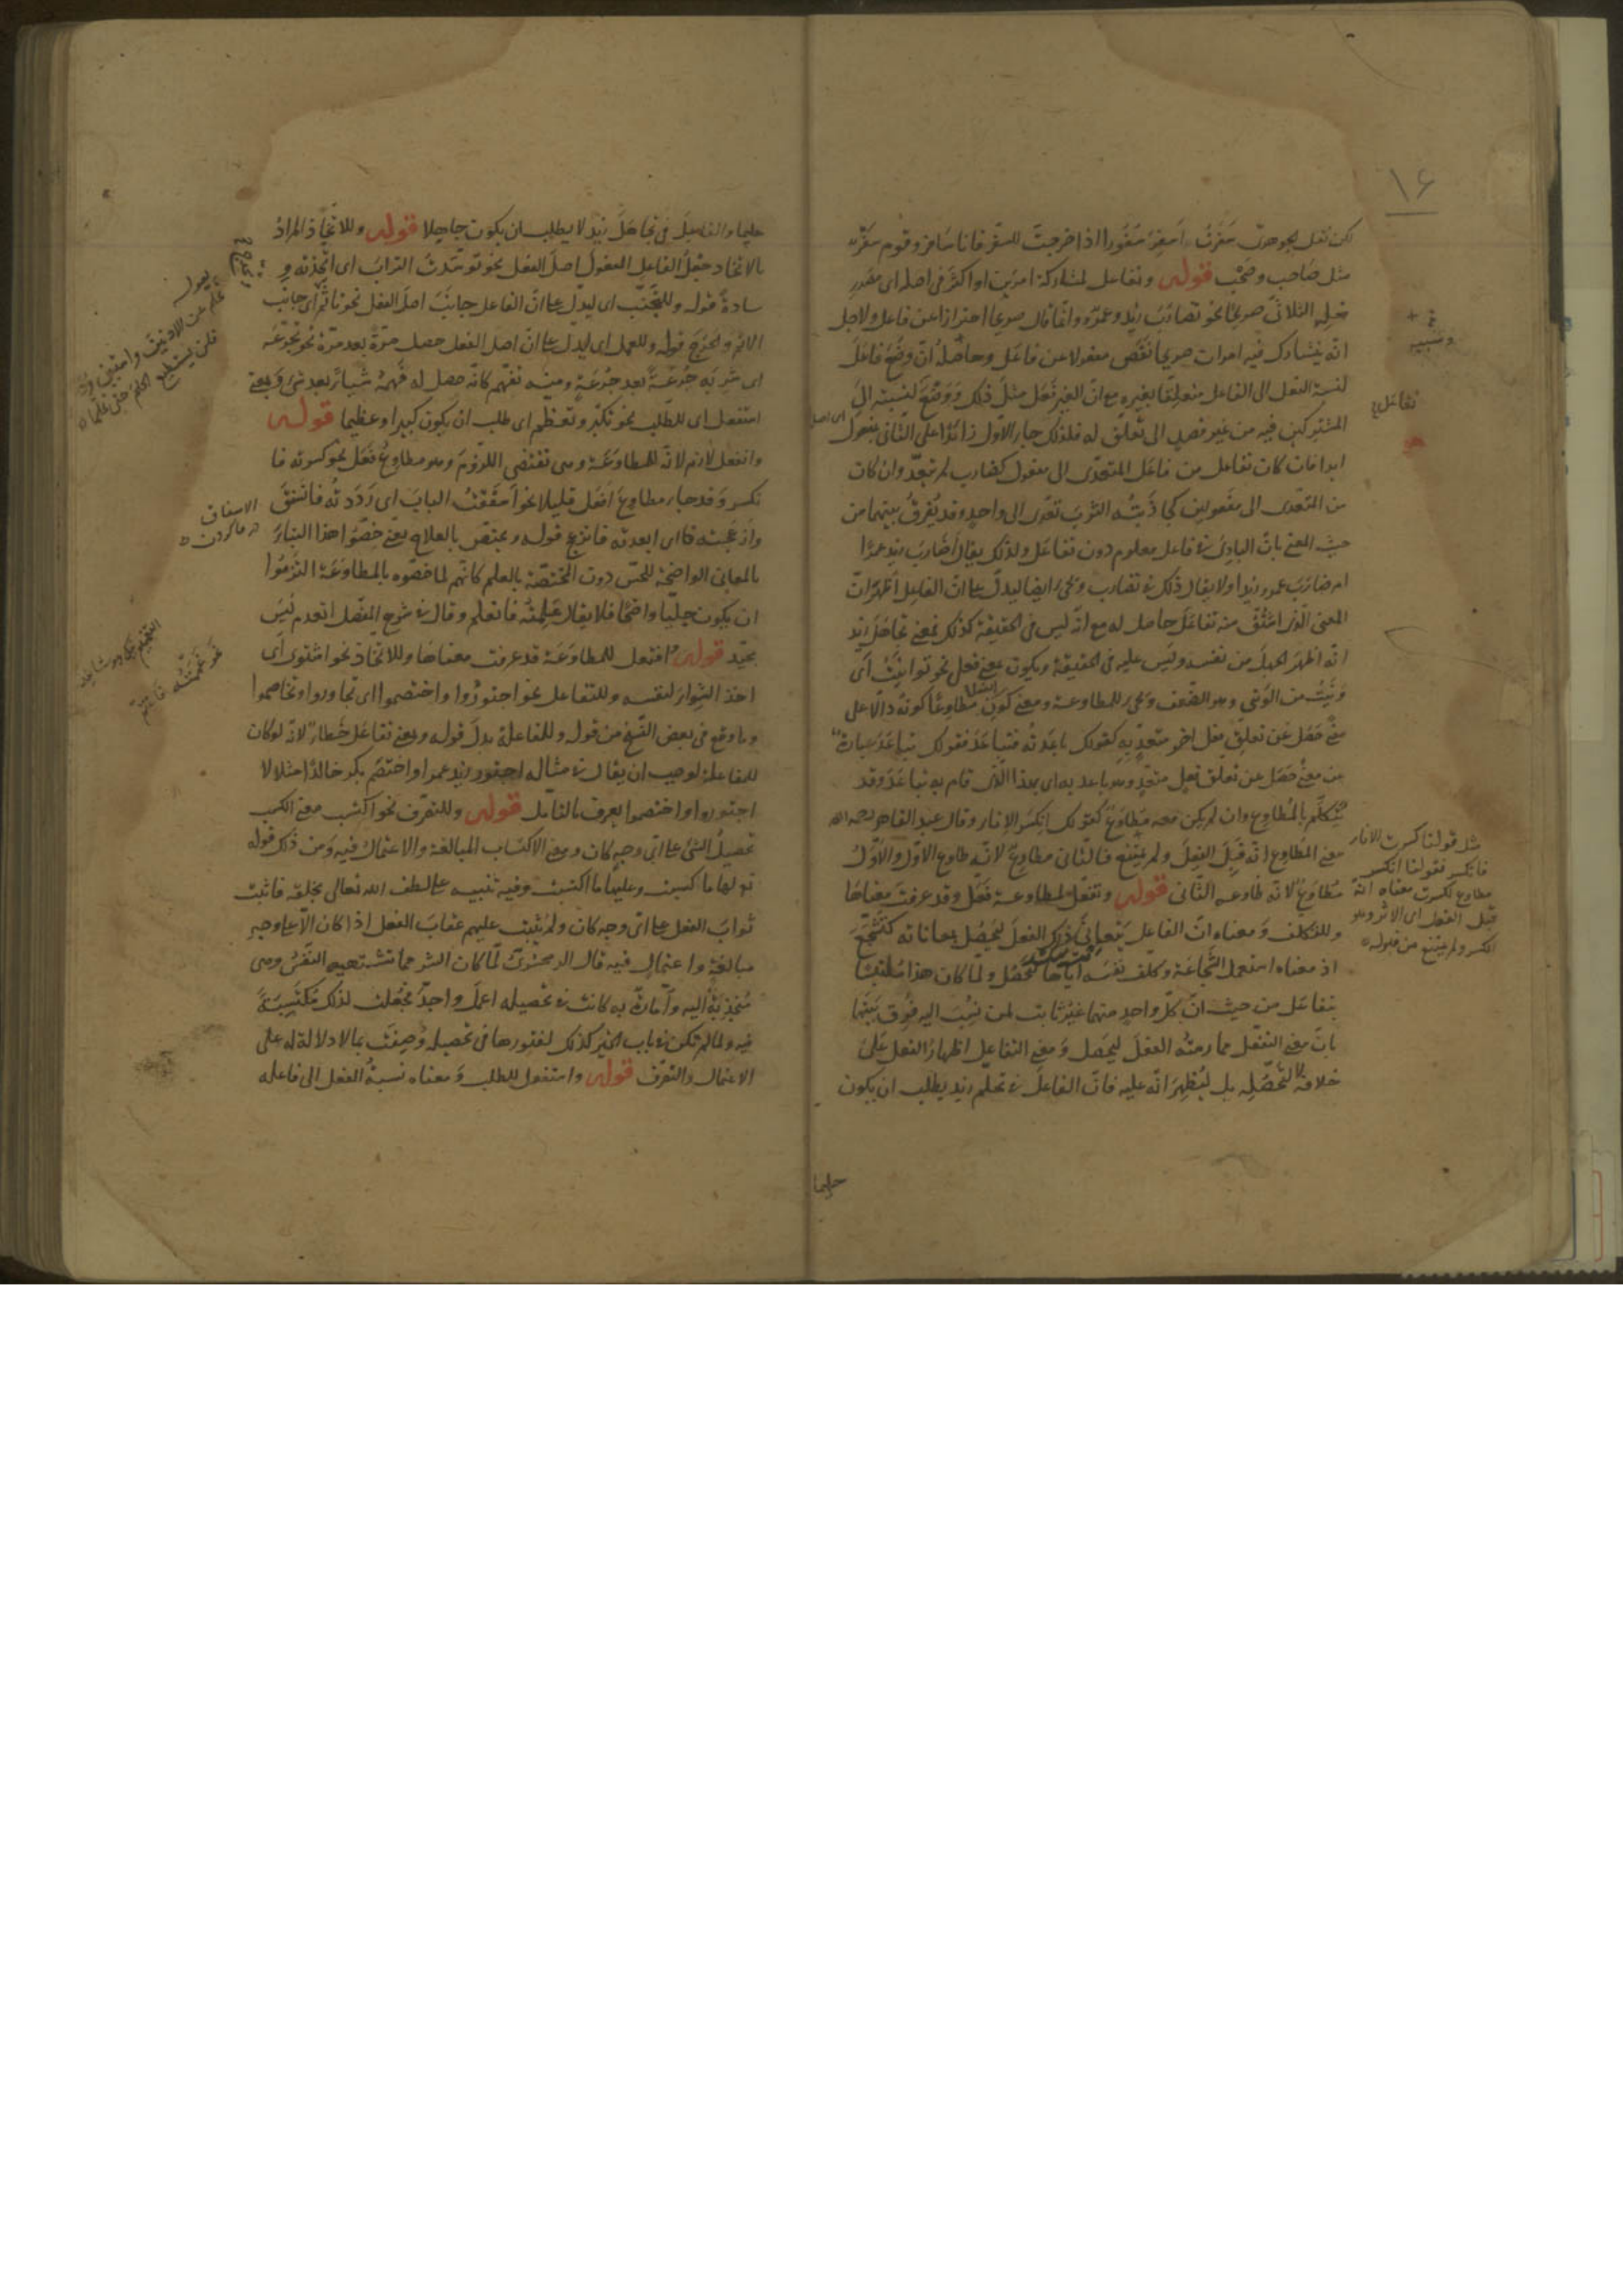 ١٦
لكن نقل الجوهرى سَفَرْتُ اَسفِرُ سُفُورا اذا خرجتَ للسفر فانا سَافِر وقوم سَفْرٌ
مثل صَاحب وصَحْب قوله وتفاعل لمشاركة امرَين او اكثر فى اصله اى مصدرِ
فعلِه الثلاثى صريحًا نحو تضارَبَ زيد وعمرو وانما قال صريحا احترازا عن فاعل ولاجل
انّه يتشارك فيه امران صريحا نقَص مفعولا عن فاعَل وحاصلُه انّ وضعَ فاعَلَ
لنسبة الفعل الى الفاعل متعلِقًا بغيره مع انّ الغير فَعَل مثلَ ذلك ووضْعَ لنسبته الى
المشتركين فيه من غير قصدٍ الى تعلّق له فلذلك جاء الاوّل زائدًا على الثانى بمفعول
ابدا فان كان تفاعل من فاعَل المتعدّى الى مفعول كضارب لم يتعدّ وان كان
من المتعدى الى مفعولين كجاذَبتُه الثوبَ تعدّى الى واحدٍ وقد يُفرقُ بينهما من
حيث المعنى بانّ البادِئَ فى فاعل معلوم دون تفاعَل ولذلك يقال أضَاربَ زيد عمرًا
ام ضارَبَ عمرو زيدا ولا يقال ذلك فى تضارب وتجئ ايضا ليدلّ على انّ الفاعِل اَظْهرَ انّ
المعنى الّذى اشتُقّ منه تفاعَل حاصل له مع انّه ليس فى الحقيقة كذلك فمعنى تجاهَلَ زيد
انّه اظهرَ الجهلَ من نفسه وليس عليه فى الحقيقة ويكون بمعنى فعل نحو توانَيتُ اى
وَنَيتُ من الوَنى وهو الضعف وتجئ للمطاوعة ومعنى كون الفعل مطاوِعًا كونُه دالّا على
معنًى حَصَل عن تعلّق فعل اخر متعدٍّ به كقولك باعَدته فتباعَدَ فقولك تباعَدَ عبارة
عن معنًى حَصَل عن تعلّق فعلٍ متعدٍّ وهو باعد به اى بهذا الذى قام به تباعَدَ وقد
يُتكلّم بالمُطاوِع وان لم يكن معه مطاوَعٌ كقولك انكسَر الاناء وقال عبد القاهر رحمه الله
معنى المطاوع انّه قَبِلَ الفِعلَ ولم يمتنع فالثانى مطاوِعٌ لانّه طاوع الاوّل والاوّلُ
مُطاوَعٌ لانّه طاوعه الثانى قوله وتفعّل لمطاوعة فعّل وقد عرفت معناها
وللتكلّف ومعناه انّ الفاعل يتعانى ذلك الفعلَ ليحصُل بمعاناته كتشجّعَ
اذ معناه استعمل الشّجاعَة وكلّف نفسَه ايّاها لتحصُل ولما كان هذا مُلتبِسًا
بتفاعَل من حيث انّ كلّ واحدٍ منهما غيرُ ثابت لمن نُسِبَ اليه فُرِق بينهما
بانّ معنى التفعّل ممارسَةُ الفعلَ ليحصل ومعنى التفاعل اظهارُ الفعل عَلى
خلافه لا لتحصُّلِه بل ليُظهِرَ انّه عليه فانّ الفاعلَ فى تحلّم زيد يطلب ان يكون
حليما
وتشبيه
تفاعَل
مثل قولنا كسرت الاناء
فانكسر فقولنا انكسر
مطاوع لكسرت معناه انّه
قَبِلَ الفعل اى الاثر وهو
الكسر ولم يمتنع من قبوله
حليما والفاعِلَ فى تجاهَلَ زيد لا يطلب ان يكون جاهلا قوله وللاتّخاذ المرادُ
بالاتخاذ جَعْلُ الفاعلِ المفعولَ اصلَ الفعل نحو توسّدتُ الترابَ اى اتّخذتُه وِ
سادةً قوله وللتجنّب اى ليدلّ على انّ الفاعل جانَبَ اصلَ الفعل نحو تاثّم اى جانَب
الاثم وتَحرّج قوله وللعمل اى ليدل على انّ اصل الفعل حصل مرّة بعد مرّة نحو تجرّعتُه
اى شربته جُرعَةً بعد جُرعَةٍ ومنه تفهّم كانّه حصل له فَهمُه شيأً بعد شئ وبمعنى
استفعل اى للطّلب نحو تكبّر وتعظّم اى طلب ان يكون كبيرا وعظيما قوله
وانفعل لازم لانّه للمطاوَعَة وهى تقتضى اللزُومَ وهو مطاوِعُ فَعَل نحو كسرته فا
نكسر وقد جاء مطاوِعَ اَفعَل قليلا نحو اَسفَقتُ البابَ اى رَدَدتُه فانسَفَقَ
وازعَجتُه اى ابعدته فانزعج قوله ويختصّ بالعلاج يعنى خصّوا هذا البناءَ
بالمعانى الواضحة للحسّ دون المختصّة بالعلم كانّهم لما خصّوه بالمطاوَعَة التزمُوا
ان يكون جليّا واضحًا فلا يقال عَلِمتُه فانعلم وقال فى شرح المفصّل انعدم ليس
بجيّد قوله وافتعل للمطاوَعَة قد عرفت معناها وللاتّخاذ نحو اشتوى اى
اخذ الشِّواءَ لنفسه وللتفاعل نحو اجتوَرُوا واختصموا اى تجاوروا وتخاصموا
وما وقع فى بعض النّسخ من قوله وللمفاعلة بدلَ قوله وبمعنى تفاعَل خَطَأ لانّه لو كان
للمفاعلة لوجب ان يقال فى مثاله اجتور زيد عمرا واختصَم بكر خالدًا مثلا لا
اجتوروا واختصموا يعرف بالتامّل قوله وللتصرّف نحو اكتسَب معنى الكسب
تحصيلُ الشئ على اىّ وجه كان ومعنى الاكتساب المبالغة والاعتمال فيه ومن ذلك قوله
تع لها ما كسبت وعليها ما اكتسبت وفيه تنبيه على لطف الله تعالى بخلقه فاثبت
ثوابَ الفعل على اىّ وجه كان ولم يُثبِت عليهم عقابَ الفعل اذا كان الّا على وجه
مبالغةٍ واعتمالٍ فيه قال الزمخشرىّ لمّا كان الشر مما تشتهيه النّفسُ وهى
مُنجذِبَةٌ اليه واَمّارةٌ به كانت فى تحصيله اعملَ واجدَّ فجُعلت لذلك مكتسِبَةً
فيه ولما لم تكن فى باب الخير كذلك لفتورها فى تحصيله وُصِفَت بما لا دلالة له على
الاعتمال والتصرّف قوله واستفعل للطلب ومعناه نسبةُ الفعل الى فاعله
الاسفاق
در فراز كردن
نحو غممتُه فاغتمّ